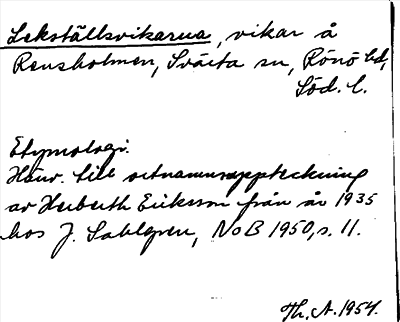 Lekställsvikarna, vikar å
Rensholmen, Svärta sn, Rönö hd,
Söd. l.
Etymologi.
Hänv. till ortnamnsuppteckning
av Herberth Ericsson från år 1935
hos J. Sahlgren, NoB 1950, s. 11.
Th. A. 1954.